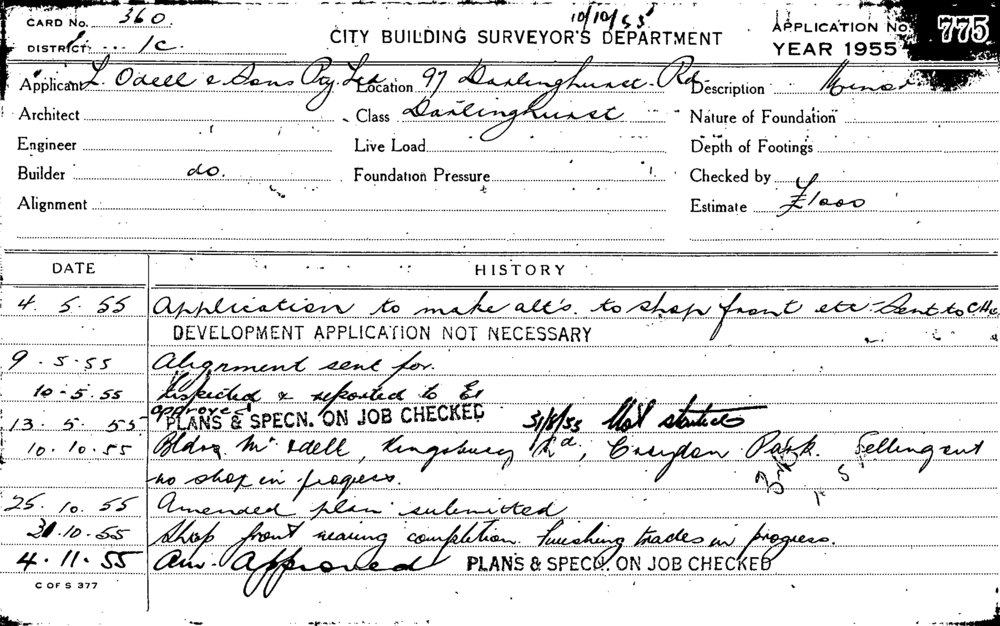 CARD No. 360
10/10/55
DISTRICT 1c.
CITY BUILDING SURVEYOR'S DEPARTMENT
APPLICATION No. 775
YEAR 1955
Applicant L. Odell & Sons Pty. Ltd Location 97 Darlinghurst Rd Description Minor
Architect Class Darlinghurst Nature of Foundation
Engineer Live Load Depth of Footings
Builder do. Foundation Pressure Checked by
Alignment Estimate £1000
DATE HISTORY
4. 5. 55 Application to make alt's. to shop front etc. Sent to
DEVELOPMENT APPLICATION NOT NECESSARY
9. 5. 55 Alignment sent for.
10-5.55 Inspected & reported to
approved
13. 5. 55 PLANS & SPECN. ON JOB CHECKED 31/8/55 Not started
10.10.55 Bldr. Mr Odell, Kingsbury Rd, Croydon Park.
no shop in progess.
25. 10. 55 Amended plan submitted
31.10.55 Shop front nearing completion. Finishing trades in progress.
4. 11. 55 Am. Approved PLANS & SPECN. ON JOB CHECKED
C OF S 377